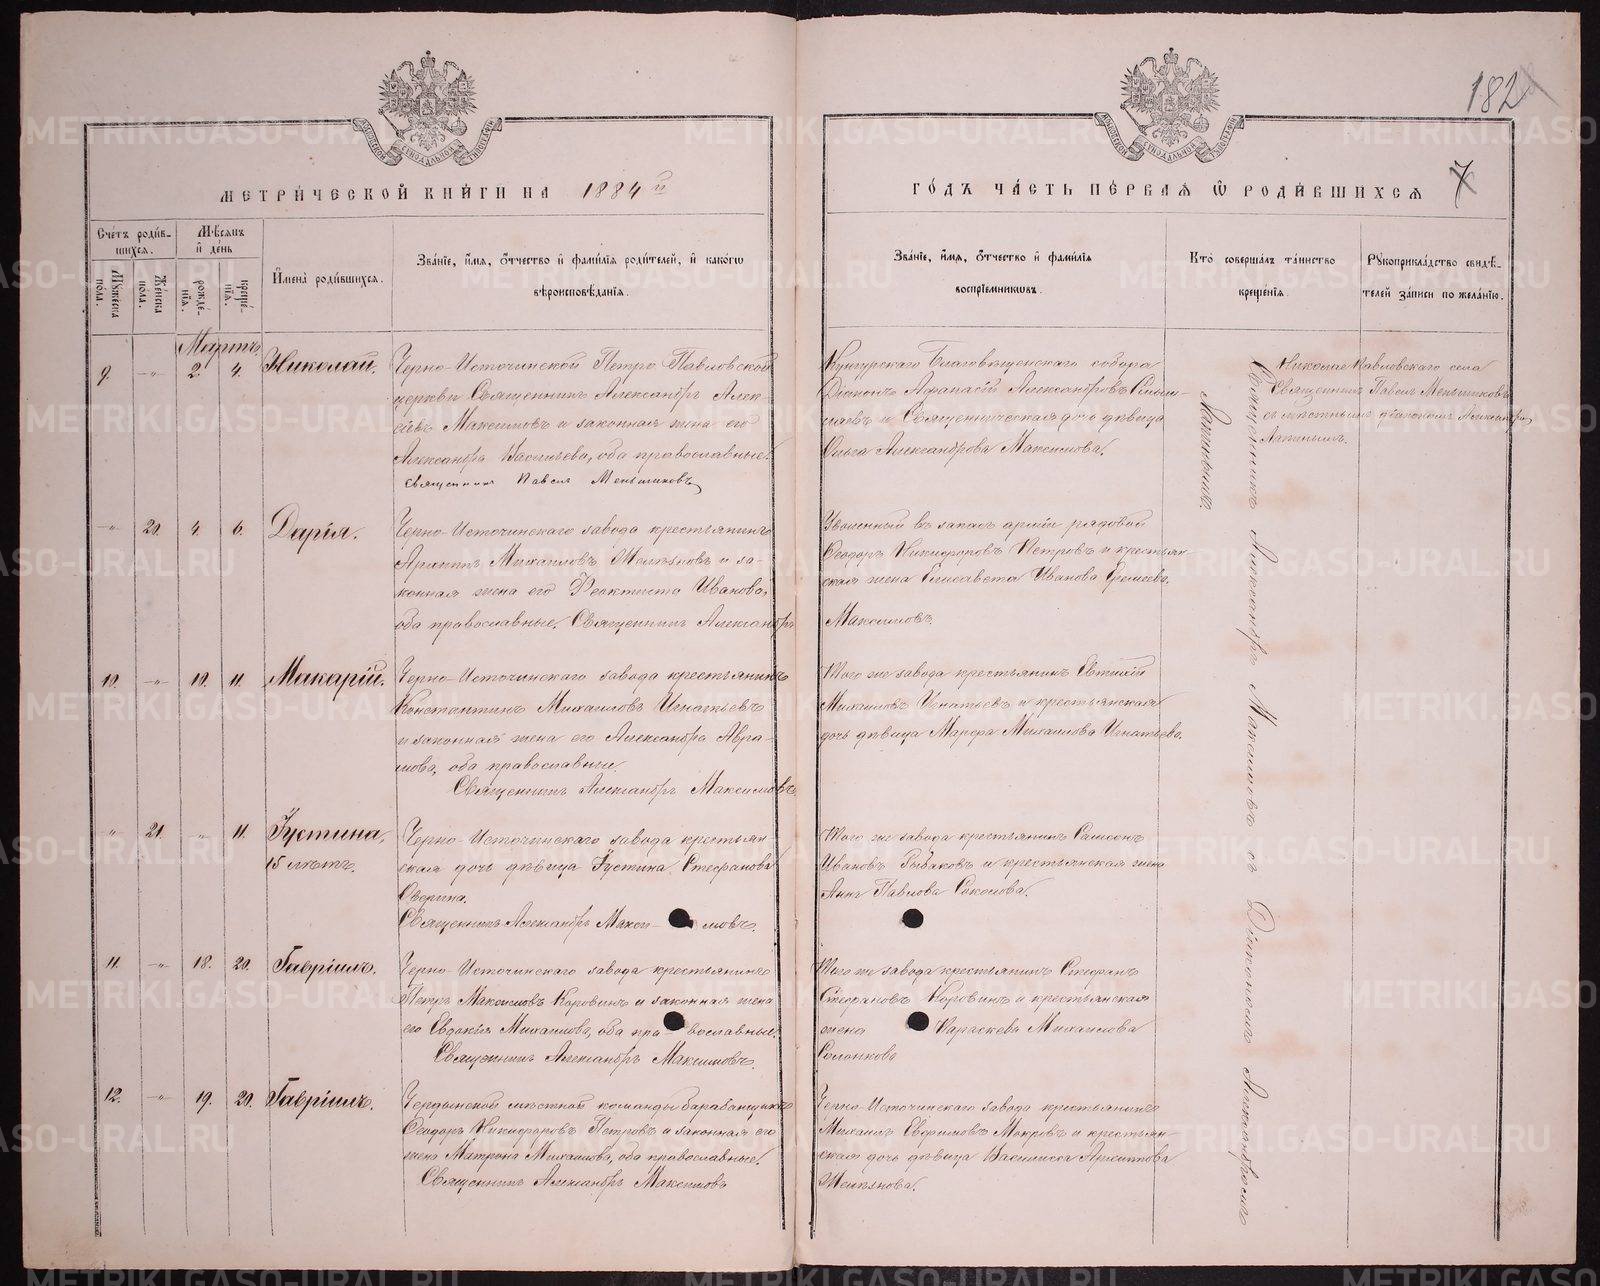 182
7
МЕТРИ́ЧЕСКОЙ КНИ́ГИ НА 1884й
ГО́ДЪ ЧА́СТЬ ПЕ́РВАЯ Ѿ РОДИ́ВШИХСЯ
Сче́тъ роди́в-
шихся.
Мѣсяцъ
и҆ де́нь
Му́жеска
по́ла.
Же́нска
по́ла.
рожде́-
нїя.
креще́-
нїя.
И҆мена̀ роди́вшихся.
Зва́нїе, и҆́мя, ѻ҆́тчество и҆ фами́лїя роди́телей, и҆ како́гѡ
вѣроисповѣ́данїя.
Зва́нїе, и҆́мя, ѻ҆́тчество и҆ фами́лїя
воспрїе́мникѡвъ.
Кто̀ соверша́лъ та́инство
креще́нїя.
Рꙋкоприкла́дство свидѣ́-
телей за́писи по жела́нїю.
Мартъ.
9. -„- 2. 4. Николай.
Черно-Источинской Петро-Павловской
церкви Священникъ Александръ Алек-
сѣевъ Максимовъ и законная жена его
Александра Васильева, оба православные.
Священникъ Павелъ Меньшиковъ
Кунгурскаго Благовѣщенскаго собора
Діаконъ Афанасій Александровъ
и Священническая дочь дѣвица
Ольга Александрова Максимова.
Николае-Павловскаго села
Священникъ Павелъ Меньшиковъ
съ мѣстнымъ діакономъ Александромъ
Лапинымъ.
-„- 20. 4. 6. Дарія.
Черно-Источинскаго завода крестьянинъ
Архипъ Михаиловъ и за-
конная жена его Феоктиста Иванова,
оба православные. Священникъ Александръ
Уволенный въ запасъ арміи рядовой
Ѳеодоръ Никифоровъ Петровъ и крестьян-
ская жена Елисавета Иванова
Максимовъ.
10. -„- 10. 11. Макарій.
Черно-Источинскаго завода крестьянинъ
Константинъ Михаиловъ Игнатьевъ
и законная жена его Александра Авра-
мова, оба православные.
Священникъ Александръ Максимовъ
Того же завода крестьянинъ Евтихій
Михаиловъ Игнатьевъ и крестьянская
дочь дѣвица Марфа Михаилова Игнатьева.
„ 21. „ 11. Іустина,
15 лѣтъ.
Черно-Источинскаго завода крестьян-
ская дочь дѣвица Іустина Стефанова
Оверина.
Священникъ Александръ Макси-мовъ.
Того же завода крестьянинъ Самсонъ
Ивановъ Рыбаковъ и крестьянская жена
Анна Павлова Соколова.
11. -„- 18. 20. Гавріилъ.
Черно-Источинскаго завода крестьянинъ
Петръ Максимовъ Коровинъ и законная жена
его Евдокія Михаилова, оба пра-вославные.
Священникъ Александръ Максимовъ.
Того же завода крестьянинъ Стефанъ
Стефановъ Коровинъ и крестьянская
жена Параскева Михаилова
Солонкова
12. -„- 19. 20. Гавріилъ.
Чердынской мѣстной команды барабанщикъ
Ѳеодоръ Никифоровъ Петровъ и законная его
жена Матрона Михаилова, оба православные.
Священникъ Александръ Максимовъ
Черно-Источинскаго завода крестьянинъ
Михаилъ Евфимовъ и крестьян-
ская дочь дѣвица Василисса Архиппова
Священникъ Александръ Максимовъ съ Діакономъ Александромъ
Лапинымъ.
METRIKI.GASO-URAL.RU